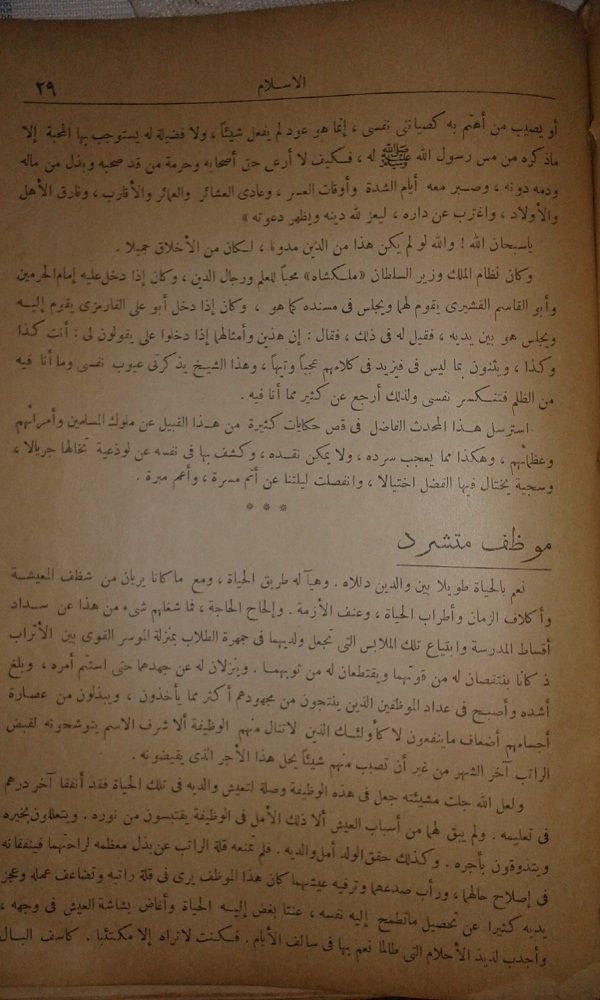 الاسلام
٢٩
أو يصيب من أهتم به كصيانتى نفسى ، إنما هو عود لم يفعل شيئاً ، ولا فضيلة له يستوجب بها المحبة إلا
ماذكره من مس رسول الله ﷺ له ، فكيف لا أرعى حق أصحابه وحرمة من قد صحبه وبذل من ماله
ودمه دونه ، وصبر معه أيام الشدة وأوقات العسر ، وعادى العشائر والعمائر والأقارب ، وفارق الأهل
والأولاد ، واغترب عن داره ، ليعز لله دينه ويظهر دعوته »
ياسبحان الله ! والله لو لم يكن هذا من الدين مدونا ، لكان من الأخلاق جميلا .
وكان نظام الملك وزير السلطان «ملكشاه» محباً للعلم ورجال الدين ، وكان إذا دخل عليه إمام الحرمين
وأبو القاسم القشيرى يقوم لهما ويجلس فى مسنده كما هو ، وكان إذا دخل أبو على الفارمزى يقوم إليه
ويجلس هو بين يديه ، فقيل له فى ذلك ، فقال : إن هذين وأمثالهما إذا دخلوا على يقولون لى : أنت كذا
وكذا ، ويثنون بما ليس فى فيزيد فى كلامهم عجباً وتيهاً ، وهذا الشيخ يذكرنى عيوب نفسى وما أنا فيه
من الظلم فتنكسر نفسى ولذلك أرجع عن كثير مما أنا فيه .
استرسل هذا المحدث الفاضل فى قص حكايات كثيرة من هذا القبيل عن ملوك المسلمين وأمرائهم
وعظمائهم ، وهكذا مما يعجب سرده ، ولا يمكن نقده ، وكشف بها فى نفسه عن لوذعية تخالها جريالا ،
وسجية يختال فيها الفضل اختيالا ، وانفصلت ليلتنا عن أتم مسرة ، وأعم مبرة .
* * *
موظف متشرد
نعم بالحياة طويلا بين والدين دللاه . وهيآ له طريق الحياة ، ومع ما كانا يريان من شظف المعيشة
وأكلاف الزمان وأطراب الحياة ، وعنف الأزمة . وإلحاح الحاجة ، فما شغلهم شىء من هذا عن سداد
أقساط المدرسة وابتياع تلك الملابس التى تجعل ولديهما فى جمهرة الطلاب بمنزلة الموسر القوى بين الأتراب
ذ كانا ينتقصان له من قوتهما ويقتطعان له من ثوبهما . وينزلان له عن جهدهما حتى استتم أمره ، وبلغ
أشده وأصبح فى عداد الموظفين الذين ينتجون من مجهودهم أكثر مما يأخذون ، ويبذلون من عصارة
أجسامهم أضعاف ماينتفعون لا كأولئك الذين لاتنال منهم الوظيفة ألا شرف الاسم يتوشحونه لقبض
الراتب آخر الشهر من غير أن تصيب منهم شيئاً يحل هذا الأجر الذى يقبضونه .
ولعل الله جلت مشيئته جعل فى هذه الوظيفة وصلة لتعيش والديه فى تلك الحياة فقد أنفقا آخر درهم
فى تعليمه . ولم يبق لهما من أسباب العيش ألا ذلك الأمل فى الوظيفة يقتبسون من نوره . ويتعللون بخيره
ويتذوقون بأجره . وكذلك حقق الولد أمل والديه . فلم تمنعه قلة الراتب عن بذل معظمه لراحتهما فينفقانه
فى إصلاح حالهما ، ورأب صدعهما وترفيه عيشهما كان هذا الموظف يرى فى قلة راتبه وتضاعف عمله وعجز
يديه كثيرا عن تحصيل ماتطمح إليه نفسه ، عنتا بغض إليه الحياة وأغاض بشاشة العيش فى وجهه ،
وأجدب لديه الأحلام التى طالما نعم بها فى سالف الأيام . فكنت لاتراه إلا مكتئبا . كاسف البال